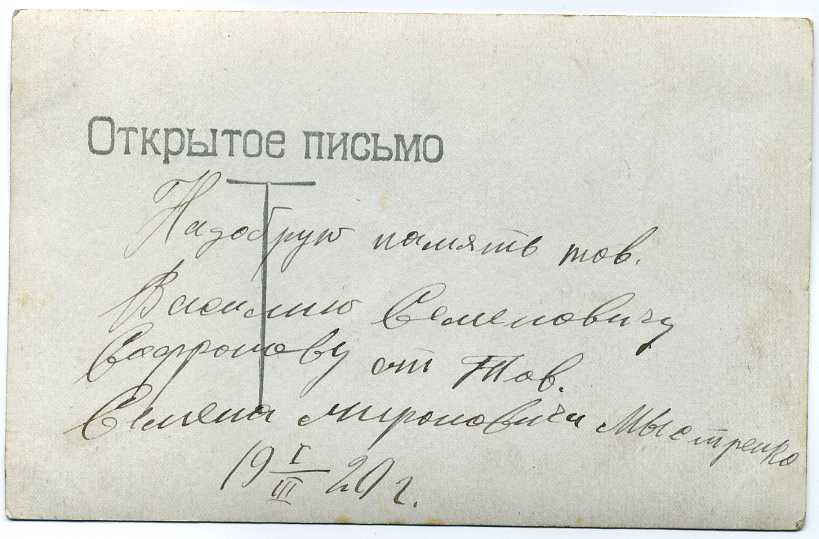 Открытое письмо
На добрую память тов.
Василию Семеновичу
Сафронову от Тов.
Семена Мироновича Мыстренко
19 I/III 20 г.